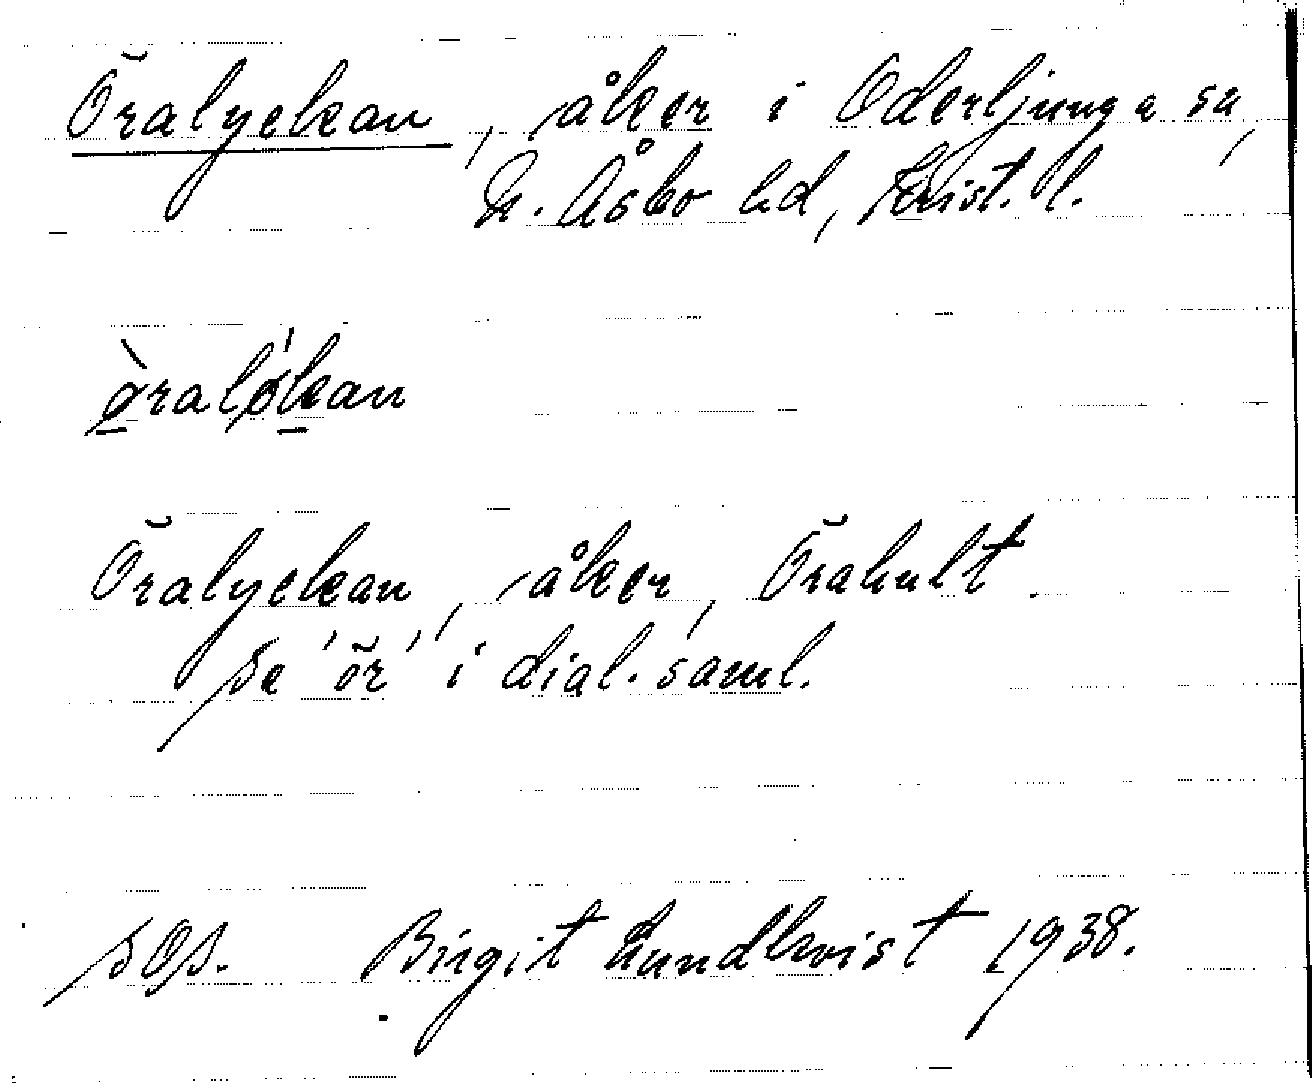 Öralyckan, åker i Oderljunga sn,
N. Åsbo hd, Krist. l.
ø̀raløʹkan
Öralyckan, åker, Örahult.
Se 'ör' i dial. saml.
SOS. Birgit Lundkvist 1938.